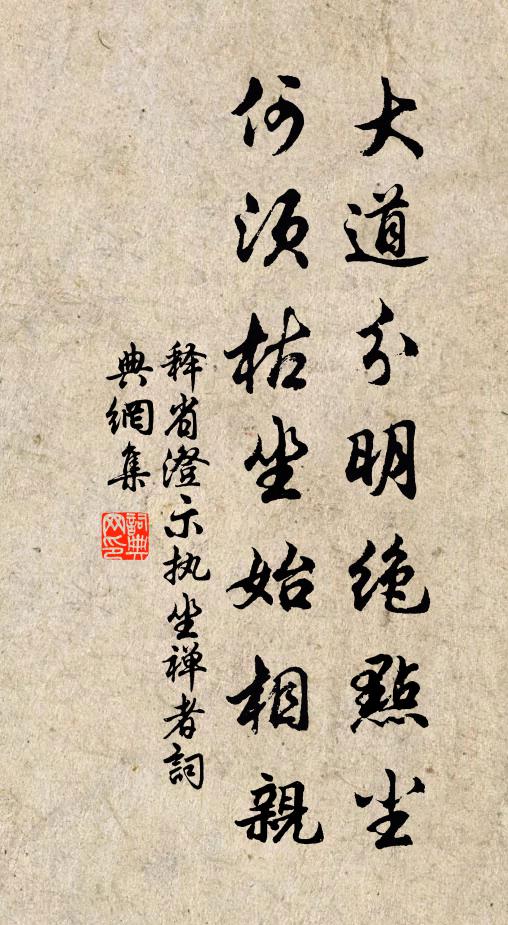 大道分明绝點尘
何须枯坐始相親
释省澄示执坐禅者詞
典網集
詞典網印